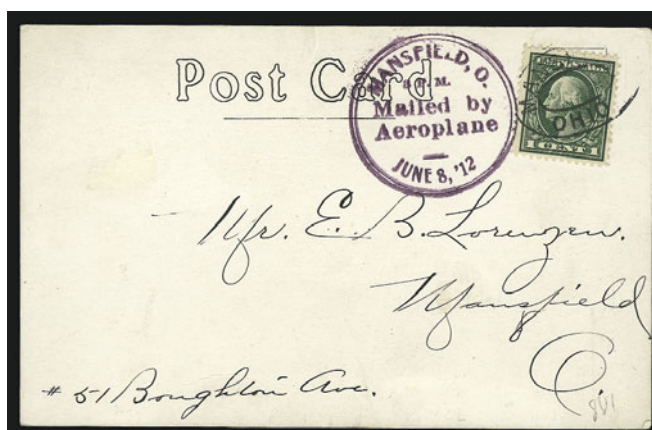 Post Card
MANSFIELD, O.
P.M.
Mailed by
Aeroplane
JUNE 8, '12
OHIO
Mr. E. B. Lorenzen.
Mansfield
O.
# 51 Boughton Ave.